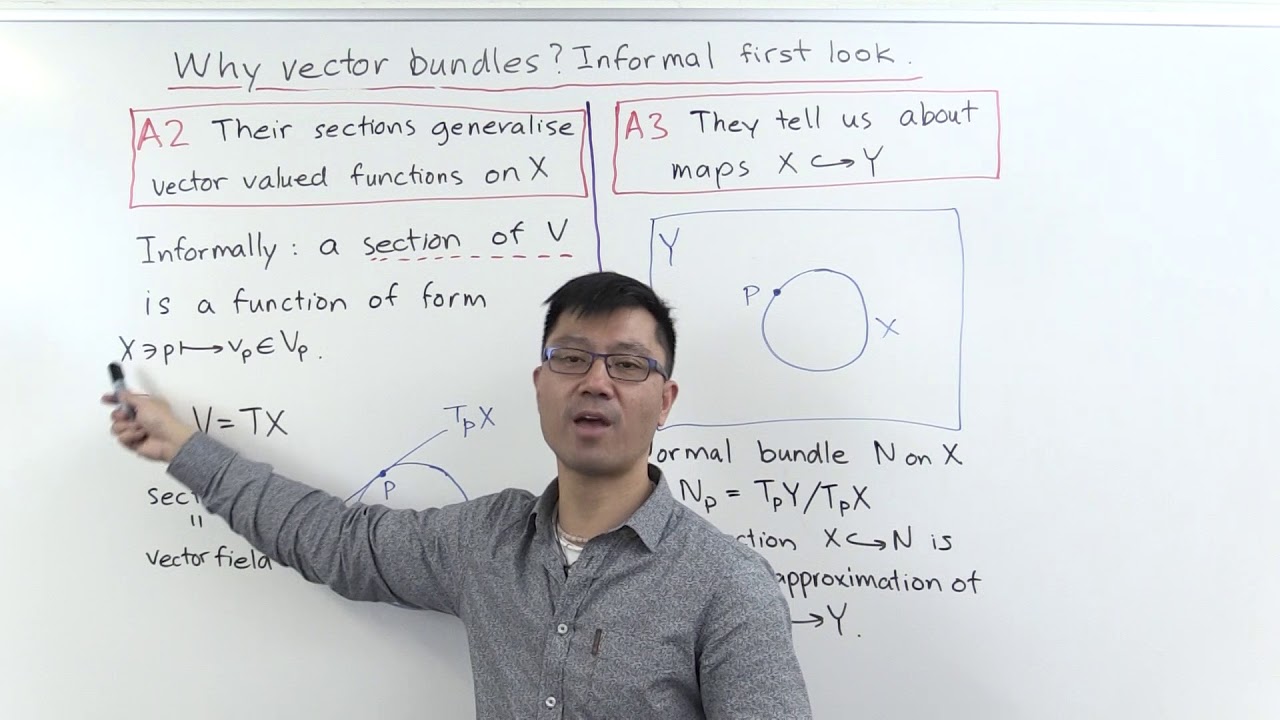 Why vector bundles? Informal first look.
A2 Their sections generalise
vector valued functions on X
Informally: a section of V
is a function of form
X ∋ p ↦ v_p ∈ V_p.
V = TX
T_pX
P
vector field
A3 They tell us about
maps X ↪ Y
Y
P
X
bundle N on X
N_p = T_pY/T_pX
X ↪ N is
approximation of
Y.